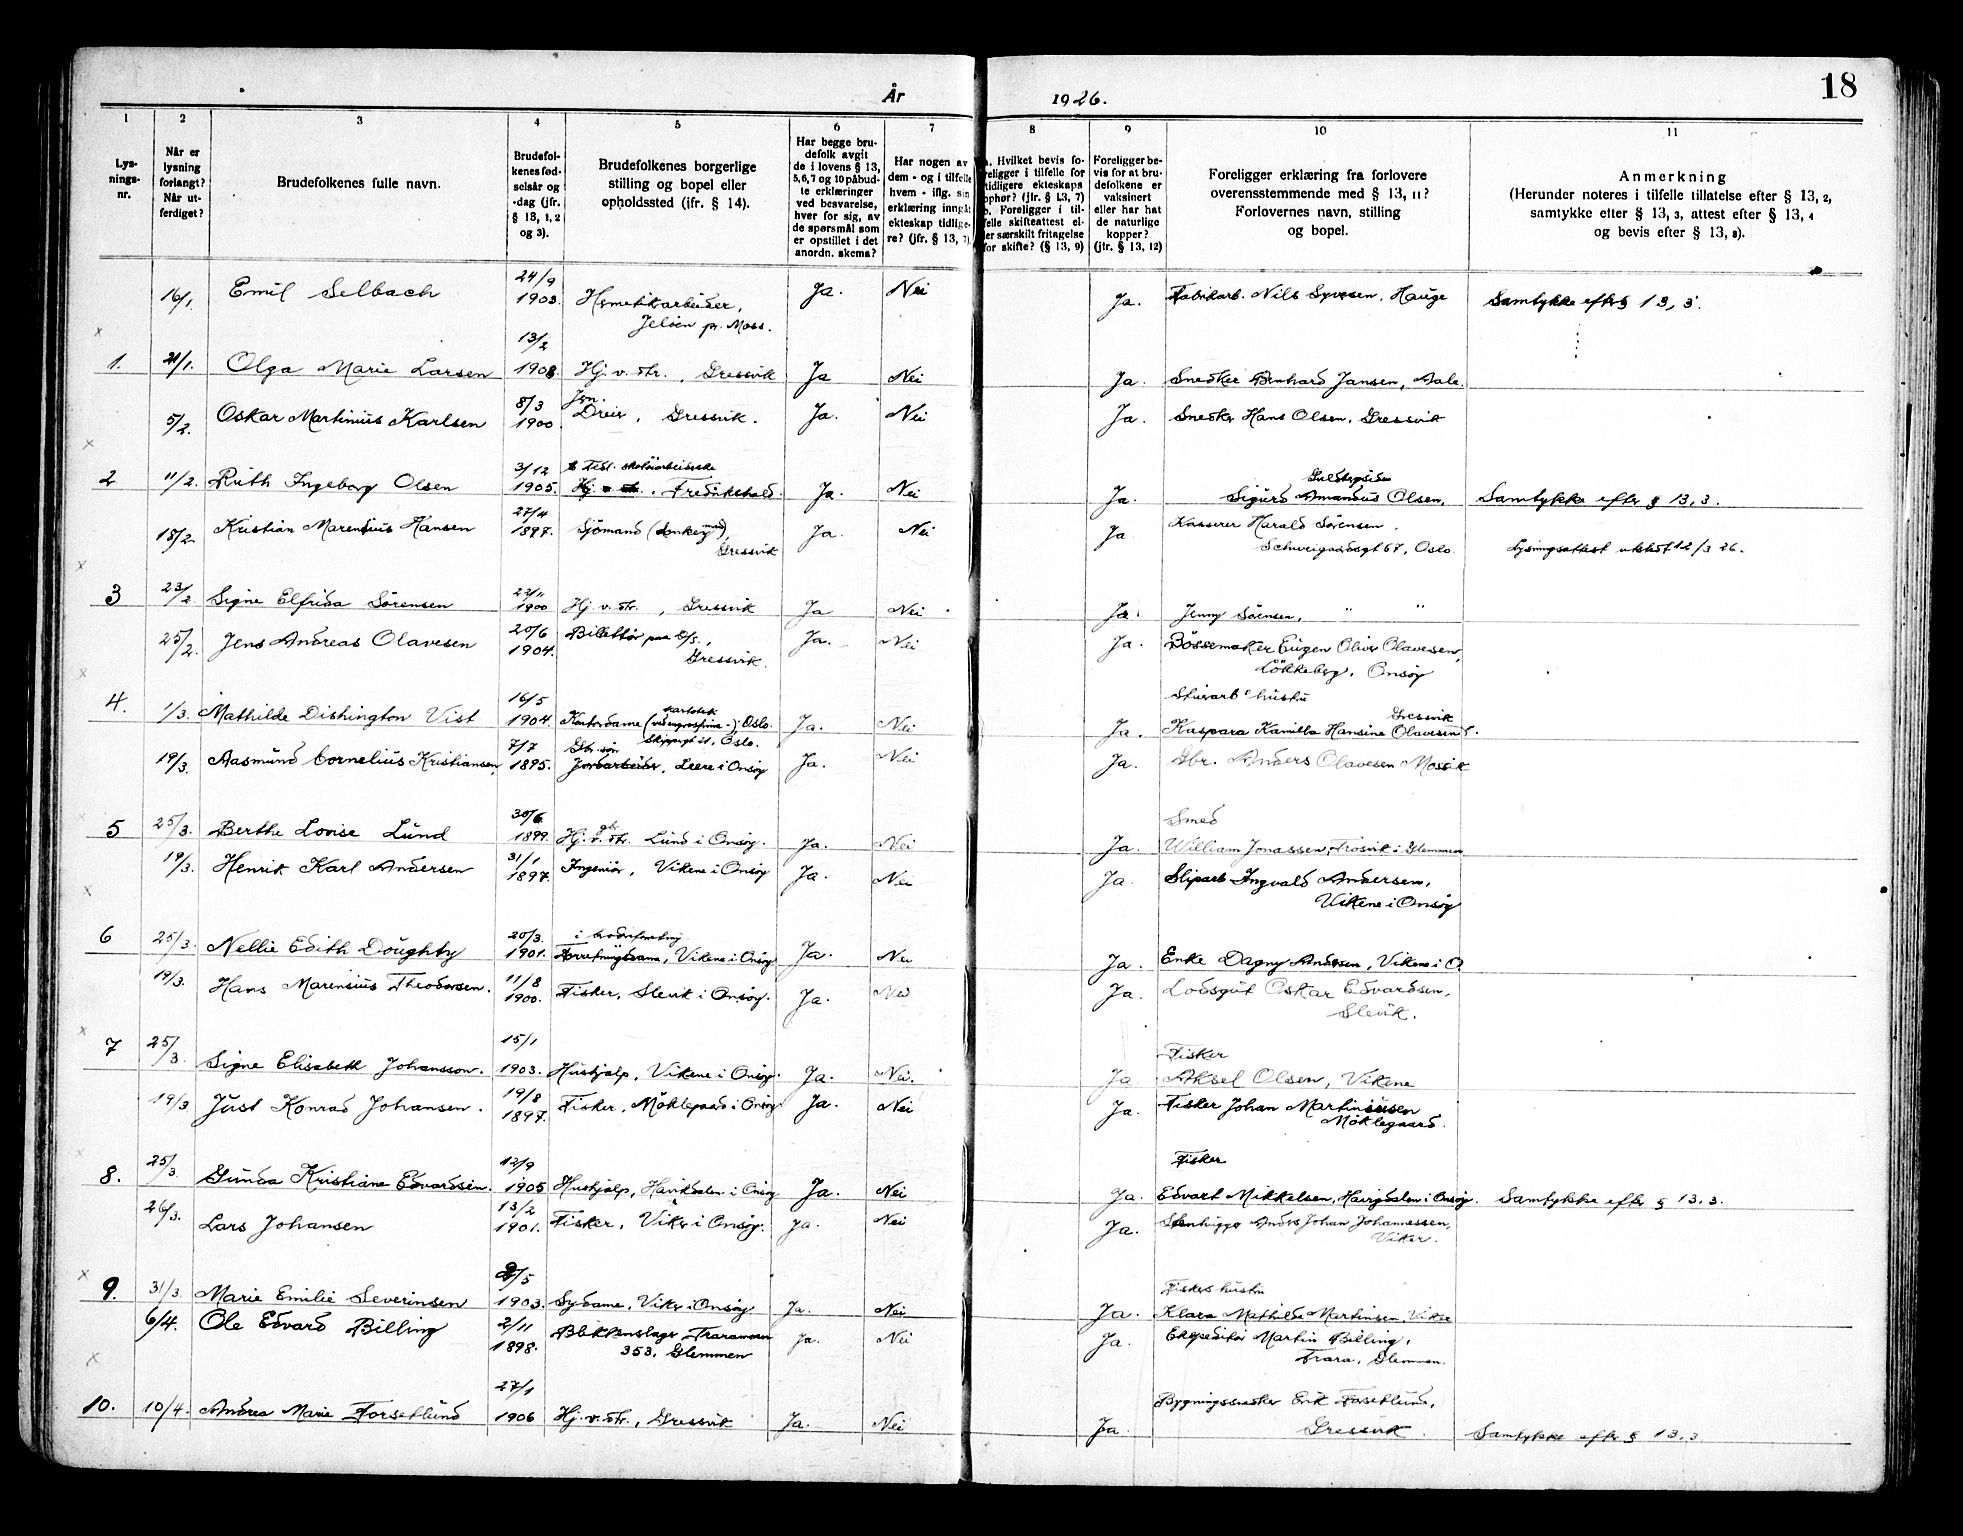 18
År 1926.
1 2 3 4 5 6 7 8 9 10 11
Lys-
nings-
nr.
Når er
lysning
forlangt?
Når ut-
ferdiget?
Brudefolkenes fulle navn.
Brudefol-
kenes fød-
selsår og
-dag (jfr.
§ 13, 1, 2
og 3).
Brudefolkenes borgerlige
stilling og bopel eller
opholdssted (ifr. § 14).
Har begge bru-
defolk avgit
de i lovens § 13,
5, 6, 7 og 10 påbud-
te erklæringer
ved besvarelse,
hver for sig, av
de spørsmål som
er opstillet i det
anordn. skema?
Har nogen av
dem - og i tilfelle
hvem - iflg. sin
erklæring inngåt
ekteskap tidlige-
re? (jfr. § 13, 7).
a. Hvilket bevis fo-
religger i tilfelle for
tidligere ekteskaps
ophør? (jfr. § 13, 7)
b. Foreligger i til-
felle skifteattest el-
ler særskilt fritagelse
for skifte? (§ 13, 9)
Foreligger be-
vis for at bru-
defolkene er
vaksinert
eller har hat
de naturlige
kopper?
(jfr. § 13, 12)
Foreligger erklæring fra forlovere
overensstemmende med § 13, 11?
Forlovernes navn, stilling
og bopel.
Anmerkning
(Herunder noteres i tilfelle tillatelse efter § 13, 2,
samtykke efter § 13, 3, attest efter § 13, 4
og bevis efter § 13, 8).
16/1. Emil Selbach 24/9 1903. Hermetikarbeider, Jeløen pr. Moss. Ja. Nei Ja. Fabrikarb. Nils Syvesen, Hauge Samtykke efter § 13, 3.
1. 21/1. Olga Marie Larsen 13/2 1908 Hj. v. str., Gressvik Ja Nei Ja. Snekker Bernhard Jansen, Aale
5/2. Oskar Martinius Karlsen 8/3 1900 Jrn. Dreier, Gressvik. Ja. Nei Ja. Snekker Hans Olsen, Gressvik
2 11/2. Ruth Ingeborg Olsen 3/12 1905. skotöiarbeiderske Hj. v. str., Fredrikshald. Ja. Nei Ja. Sigurd Amandus Olsen, Samtykke efter § 13, 3.
18/2. Kristian Marensius Hansen 27/4 1897. Sjömand (donkeymand), Gressvik Ja. Nei Ja Kasserer Harald Sörensen, Schweigaardsgt 67, Oslo. Lysningsattest utstedt 12/3 26.
3 23/2 Signe Elfrida Sörensen 22/11 1900 Hj. v. str., Gressvik Ja Nei. Ja. Jenny Sörensen, " "
25/2. Jens Andreas Olavesen 20/6 1904. Billettör paa D/S., Gressvik. Ja. Nei Ja. Bössemaker Eugen Oliver Olavesen, Lökkeberg, Onsöy
4. 1/3. Mathilde Dishington Vist 16/5 1904. Kontordame (), Oslo. Skippergt 21, Oslo. Ja. Nei Ja. Stuerarb. hustru Kaspara Kamilla Hansine Olavesen, Gressvik
19/3. Aasmund Cornelius Kristiansen, 7/7 1895. Gbr. sön Jordarbeider, Leere i Onsöy Ja. Nei Ja. Gbr. Anders Olavesen Mossik
5 25/3. Berthe Lovise Lund 30/6 1899. Hj. v. str. Lund i Onsöy. Ja. Nei Ja. Smed William Jonassen, Trosvik i Glemmen
19/3. Henrik Karl Andersen 31/1 1897 Ingeniör, Vikene i Onsöy Ja. Nei Ja. Sliparb Ingvald Andersen, Vikene i Onsöy
6 25/3. Nellie Edith Doughty 20/3. 1901. i broderforretning Forretningsdame, Vikene i Onsöy Ja. Nei Ja. Enke Dagny Andersen, Vikene i O.
19/3. Hans Marensius Theodorsen. 11/8 1900. Fisker, Slevik i Onsöy. Ja. Nei Ja. Losgut Oskar Edvardsen, Slevik.
7 25/3. Signe Elisabeth Johansson. 15/1 1903. Hushjelp, Vikene i Onsöy. Ja. Nei. Ja Fisker Aksel Olsen, Vikene
19/3 Just Konrad Johansen. 19/8 1897. Fisker, Möklegaard i Onsöy Ja. Nei Ja. Fisker Johan Martiniusen Möklegaard.
8. 25/3. Gunda Kristiane Edvardsen. 12/9 1905 Hushjelp, Haukdalen i Onsöy Ja. Nei Ja. Fisker Edvart Mikkelsen, Haugdalen i Onsöy. Samtykke efter § 13, 3.
26/3. Lars Johansen 13/2 1901. Fisker, Viker i Onsöy. Ja. Nei Ja. Stenhugger Anders Johan Johannessen, Viker.
9. 31/3. Marie Emilie Severinsen 2/5 1903. Sydame, Viker i Onsöy Ja. Nei Ja. Fiskers hustru Klara Mathilde Martinsen, Viker
6/4. Ole Edvard Billing 2/11 1898. Blikkenslager, Traraveien 353, Glemmen Ja. Nei Ja. Ekspeditör Martin Billing, Trara, Glemmen.
10. 10/4. Andrea Marie Forsetlund 27/1 1906 Hj. v. str., Gressvik Ja. Nei Ja. Bygningssnekker Erik Forsetlund, Gressvik. Samtykke efter § 13, 3